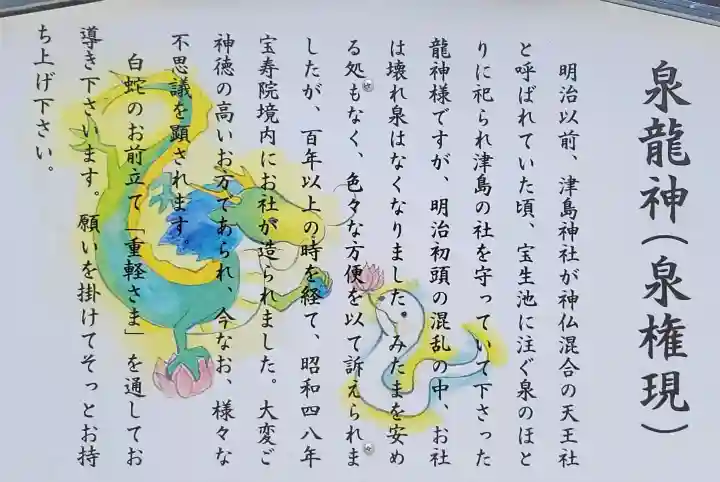 泉龍神（泉権現）
明治以前、津島神社が神仏混合の天王社
と呼ばれていた頃、宝生池に注ぐ泉のほと
りに祀られ津島の社を守っていて下さった
龍神様ですが、明治初頭の混乱の中、お社
は壊れ泉はなくなりました。みたまを安め
る処もなく、色々な方便を以て訴えられま
したが、百年以上の時を経て、昭和四八年
宝寿院境内にお社が造られました。大変ご
神徳の高いお方であられ、今なお、様々な
不思議を顕されます。
白蛇のお前立て「重軽さま」を通してお
導き下さいます。願いを掛けてそっとお持
ち上げ下さい。